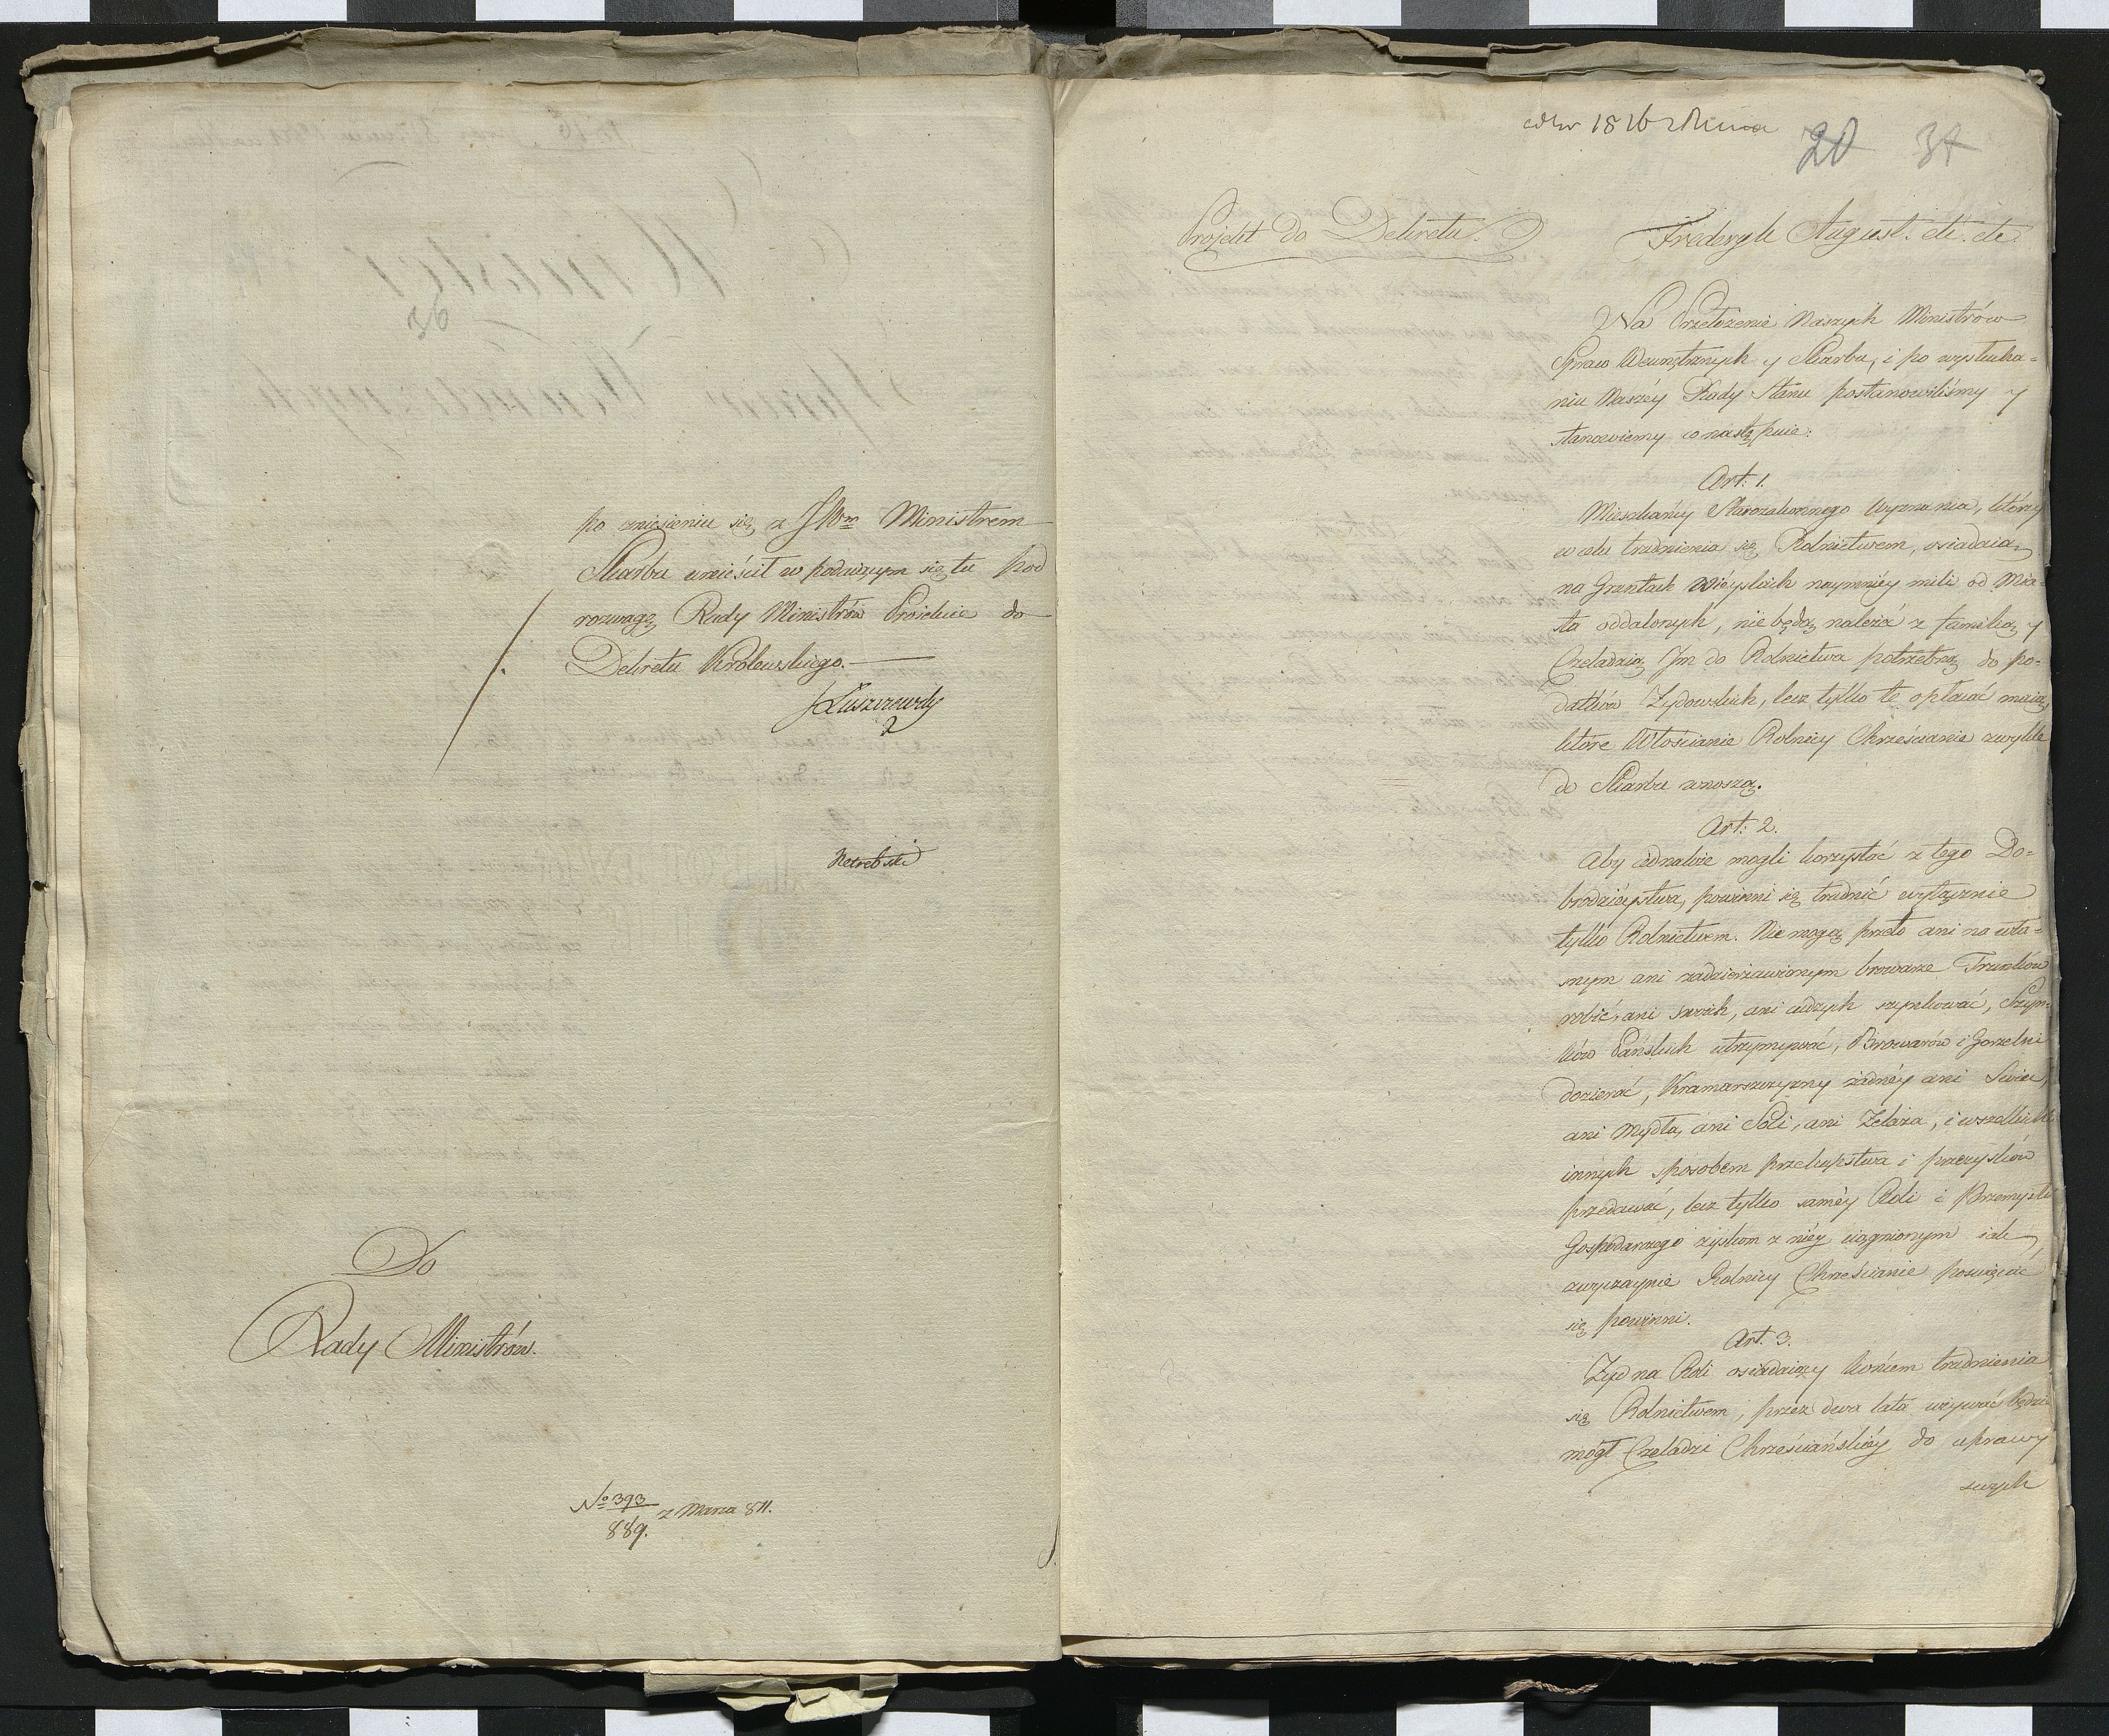 36
po zniesieniu się z JWm Ministrem
Skarbu umieścił w podaiącym się tu pod
rozwagę Rady Ministrów Proiekcie do
Dekretu Królewskiego.
JŁuszczewski
Do
Rady Ministrów.
No 393
889. z Marca 811.
1816
20 37
Projekt do Dekretu.
Frideryk August. etc. etc.
Na Przełożenie Naszych Ministrów
Spraw Wewnętrznych y Skarbu, i po wysłucha-
niu Naszéy Rady Stanu postanowiliśmy y
stanowiemy co następuie:
Art: 1.
Mieszkańcy Starozakonnego Wyznania, którzy
w celu trudnienia się Rolnictwem, osiadaią
na Gruntach Wieyskich naymniéy mili od Mia-
sta oddalonych, nie będą należeć z familią y
Czeladzią Im do Rolnictwa potrzebną do po-
datków Żydowskich, lecz tylko te opłacać maią,
które Włościanie Rolnicy Chrześcianie zwykle
do Skarbu wnoszą.
Art: 2.
Aby iednakże mogli korzystać z tego Do-
brodzieystwa, powinni się trudnić wyłącznie
tylko Rolnictwem. Nie mogą przeto ani na wła-
snym ani zadzierżawionym browarze Trunków
robić, ani swoich, ani cudzych szynkować, Szyn-
ków Pańskich utrzymywać, Browarów i Gorzelni
dozierać, Kramarszczyzny żadnéy ani Swiec,
ani Mydła, ani Soli, ani Żelaza, i wszelkich
innych sposobem przekupstwa i przemysłów
przedawać, lecz tylko saméy Roli i Przemysłu
Gospodarczego zyskom z niéy ciągnionym iak
zwyczaynie Rolnicy Chrześcianie poswięcać
się powinni.
Art. 3.
Żyd na Roli osiadaiący końcem trudnienia
się Rolnictwem, przez dwa lata używać będzie
mógł Czeladzi Chrześciańskiéy do uprawy
swych